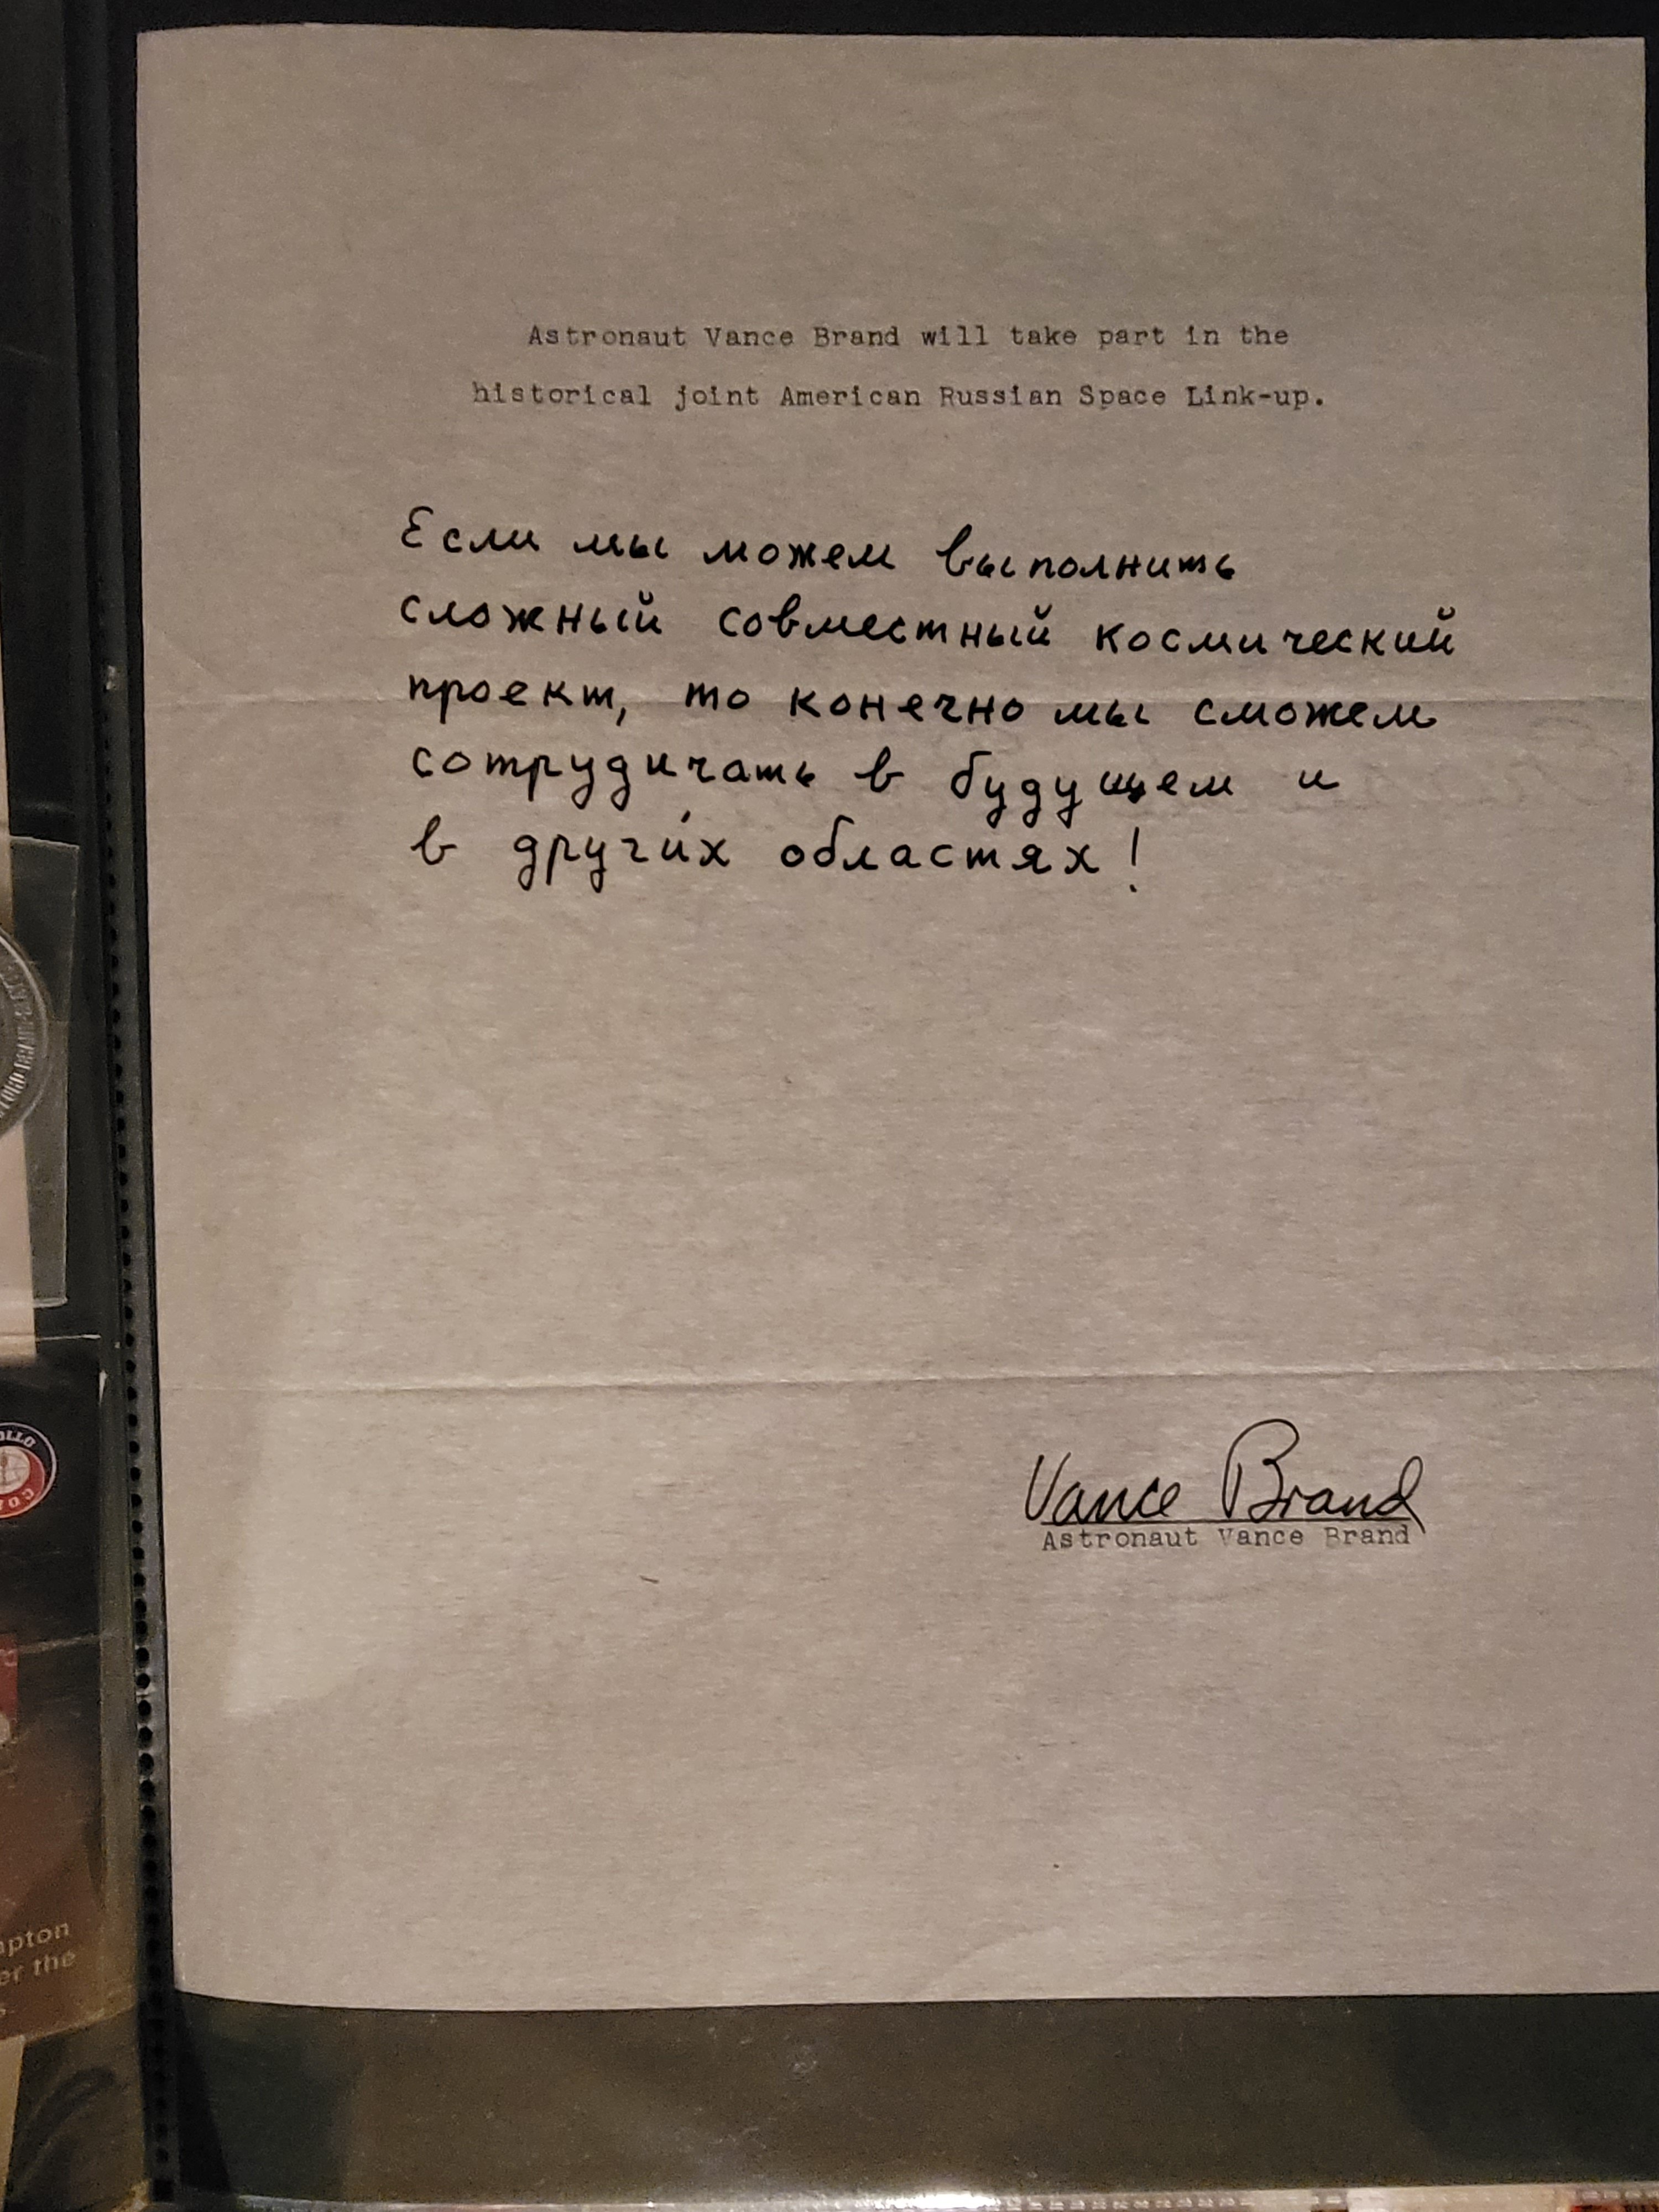 Astronaut Vance Brand will take part in the
historical joint American Russian Space Link-up.
Если мы можем выполнить
сложный совместный космический
проект, то конечно мы сможем
сотрудичать в будущем и
в други́х областях!
Vance Brand
Astronaut Vance Brand
the